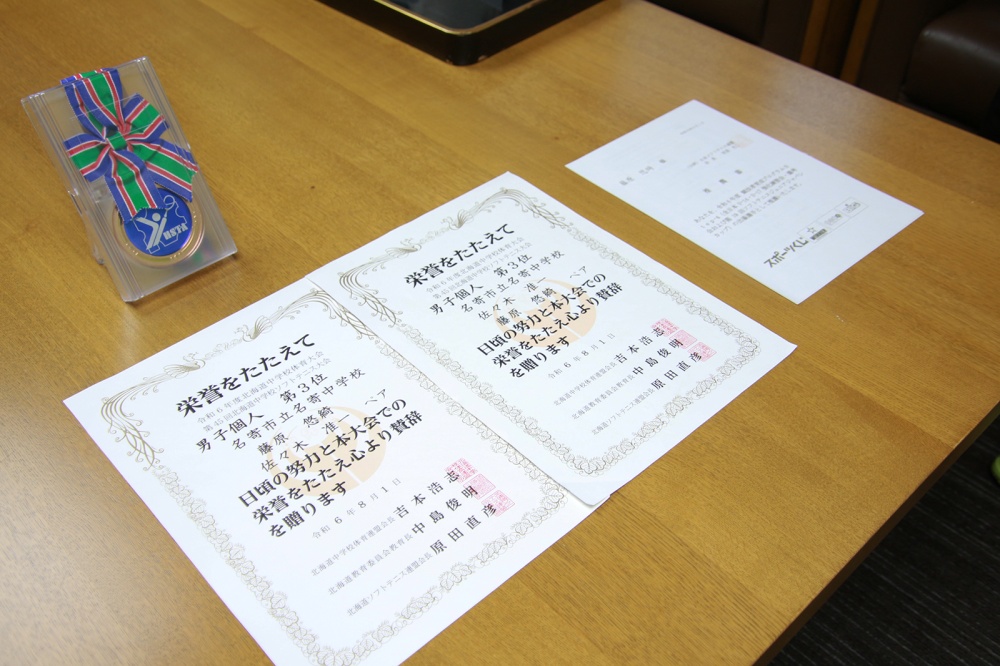 栄誉をたたえて
令和6年度北海道中学校体育大会
第45回北海道中学校ソフトテニス大会
男子個人 第3位
名寄市立名寄中学校
藤原 悠綺
佐々木 准一 ペア
日頃の努力と本大会での
栄誉をたたえ心より賛辞
を贈ります
令和6年8月1日
北海道中学校体育連盟会長 吉本浩志
北海道教育委員会教育長 中島俊明
北海道ソフトテニス連盟会長 原田直彦
栄誉をたたえて
令和6年度北海道中学校体育大会
第45回北海道中学校ソフトテニス大会
男子個人 第3位
名寄市立名寄中学校
佐々木 准一
藤原 悠綺 ペア
日頃の努力と本大会での
栄誉をたたえ心より賛辞
を贈ります
令和6年8月1日
北海道中学校体育連盟会長 吉本浩志
北海道教育委員会教育長 中島俊明
北海道ソフトテニス連盟会長 原田直彦
スポーツくじ